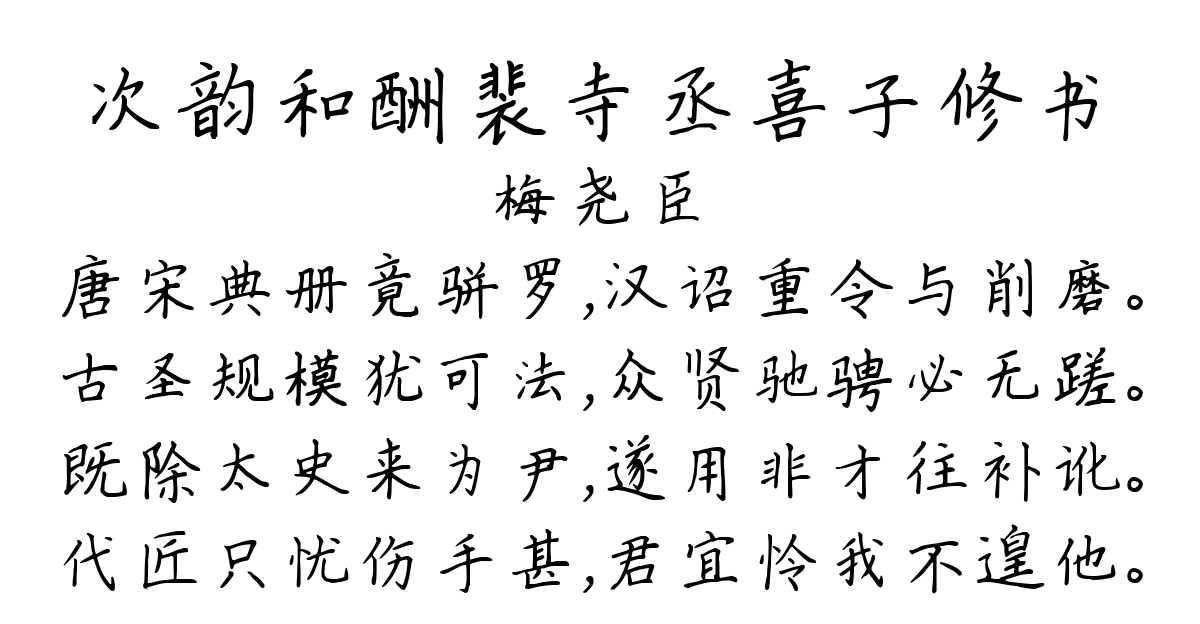 次韵和酬裴寺丞喜子修书
梅尧臣
唐宋典册竟骈罗,汉诏重令与削磨。
古圣规模犹可法,众贤驰骋必无蹉。
既除太史来为尹,遂用非才往补讹。
代匠只忧伤手甚,君宜怜我不遑他。